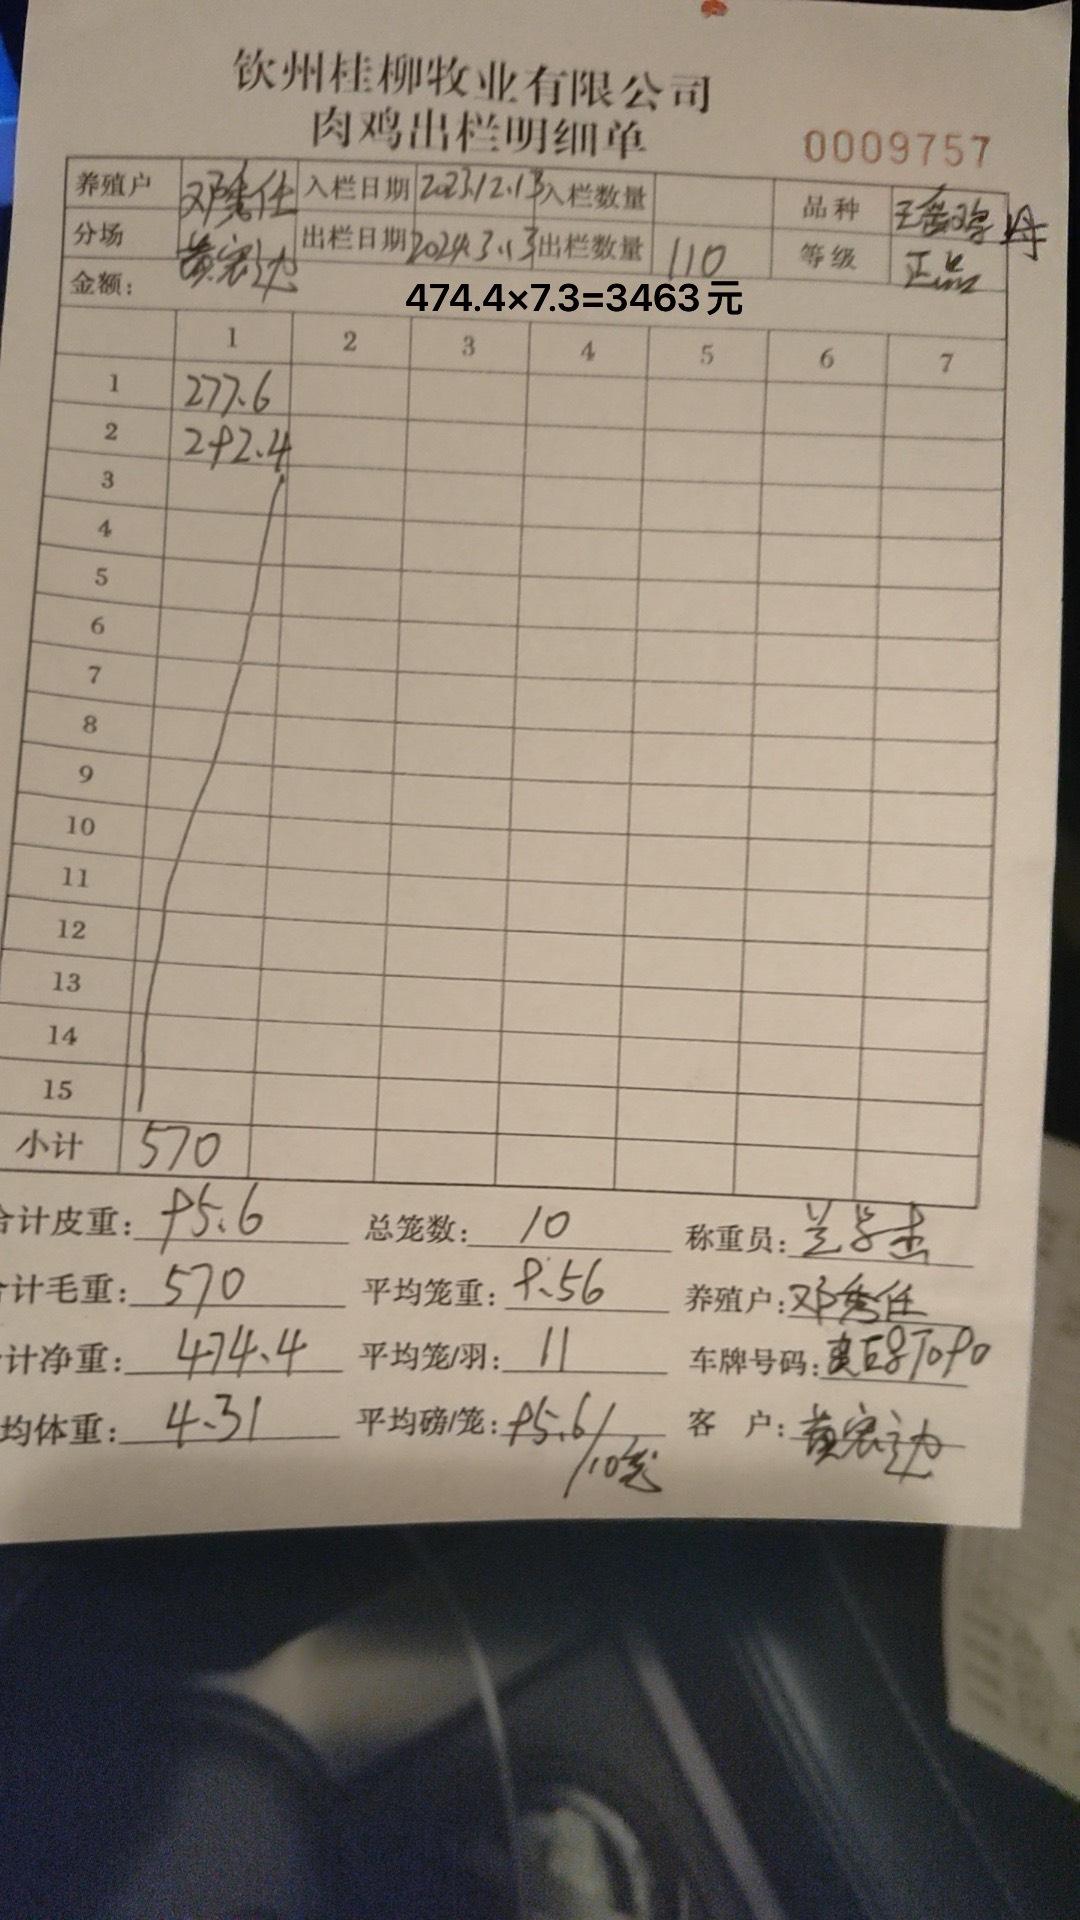 钦州桂柳牧业有限公司
肉鸡出栏明细单
0009757
养殖户 邓秀仕 入栏日期 2023.12.13 入栏数量 品种
分场 黄宏边 出栏日期 2024.3.13 出栏数量 110 等级 正品
金额: 474.4×7.3=3463元
1 2 3 4 5 6 7
1 277.6
2 292.4
3
4
5
6
7
8
9
10
11
12
13
14
15
小计 570
合计皮重: 95.6 总笼数: 10 称重员: 兰学杰
合计毛重: 570 平均笼重: 9.56 养殖户: 邓秀仕
计净重: 474.4 平均笼/羽: 11 车牌号码:
均体重: 4.31 平均磅/笼: 95.6/10笼 客 户: 黄宏边